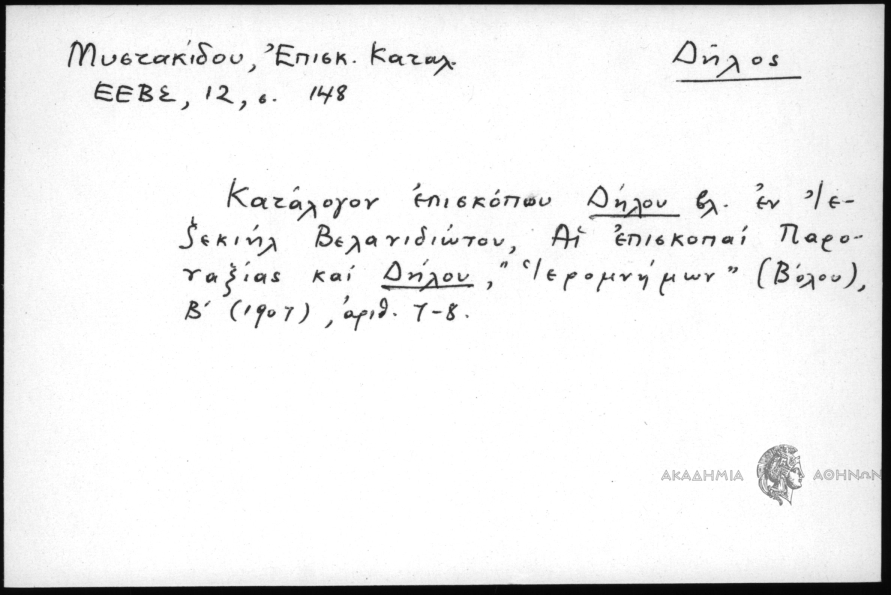 Μυστακίδου, Ἐπισκ. Καταλ.
Δῆλος
ΕΕΒΣ, 12, σ. 148
Κατάλογον ἐπισκόπων Δήλου βλ. ἐν Ἰε-
ζεκιὴλ Βελανιδιώτου, Αἱ ἐπισκοπαί Παρο-
ναξίας καί Δήλου, "Ἱερομνήμων" (Βόλου),
Β' (1907), ἀριθ. 7-8.
ΑΚΑΔΗΜΙΑ ΑΘΗΝΩΝ